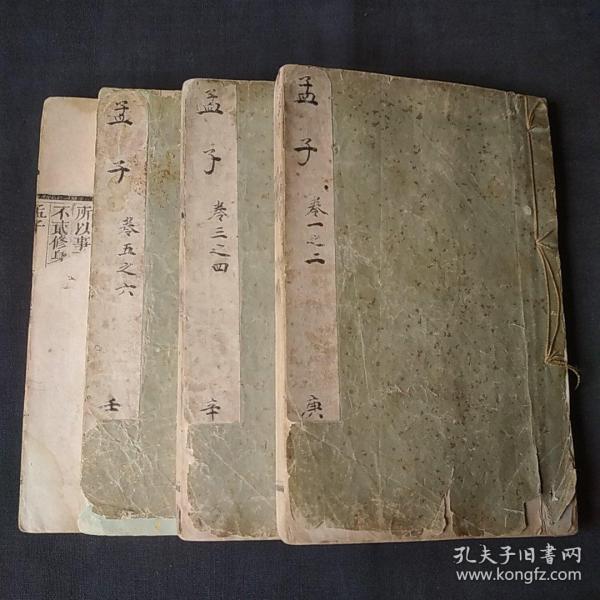 孟子
卷一之二
庚
孟子
卷三之四
辛
孟子
卷五之六
壬
所以事
不貳修身
孔夫子旧书网
www.kongfz.com